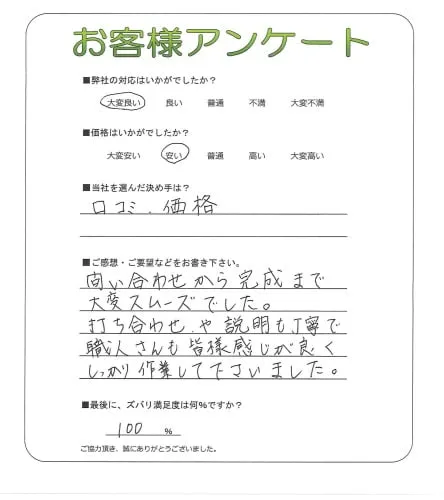 お客様アンケート
■弊社の対応はいかがでしたか？
大変良い 良い 普通 不満 大変不満
■価格はいかがでしたか？
大変安い 安い 普通 高い 大変高い
■当社を選んだ決め手は？
口コミ．価格
■ご感想・ご要望などをお書き下さい。
問い合わせから完成まで
大変スムーズでした。
打ち合わせ．や説明も丁寧で
職人さんも皆様感じが良く
しっかり作業して下さいました。
■最後に、ズバリ満足度は何％ですか？
100 ％
ご協力頂き、誠にありがとうございました。